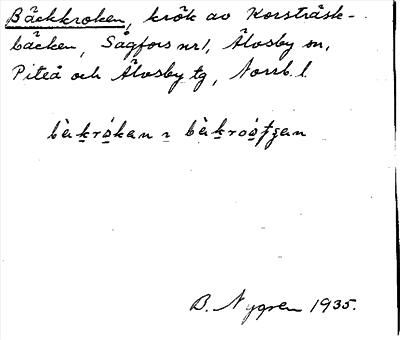 Bäckkroken, krök av Korsträsk-
bäcken, Sågfors nr 1, Älvsby sn,
Piteå och Älvsby tg, Norrb. l.
B. Nygren 1935.